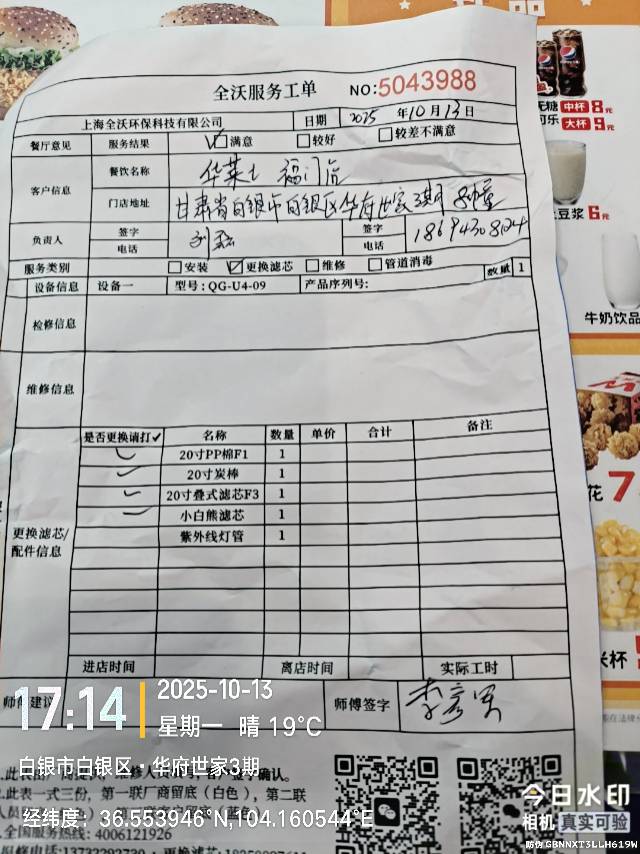 全沃服务工单 NO:5043988
上海全沃环保科技有限公司 日期 2025 年10月13日
餐厅意见 服务结果 ☑满意 □较好 □较差不满意
客户信息 餐饮名称 华莱士 福门店
门店地址 甘肃省白银市白银区华府世家3期
负责人 签字 签字
电话 电话
服务类别 □安装 ☑更换滤芯 □维修 □管道消毒 数量 1
设备信息 设备一 型号:QG-U4-09 产品序列号:
检修信息
维修信息
是否更换请打✓ 名称 数量 单价 合计 备注
✓ 20寸PP棉F1 1
✓ 20寸炭棒 1
✓ 20寸叠式滤芯F3 1
✓ 小白熊滤芯 1
紫外线灯管 1
更换滤芯/
配件信息
进店时间 离店时间 实际工时
师傅建议 师傅签字
17:14 2025-10-13
星期一 晴 19°C
白银市白银区·华府世家3期
经纬度: 36.553946°N,104.160544°E
2.此表一式三份,第一联厂商留底(白色),第二联
全国服务热线:4006121926
今日水印
相机 真实可验
防伪 GBNNXT3LLH619W
无糖 中杯 8元
可乐 大杯 9元
豆浆 6元
牛奶饮品
花 7
米杯